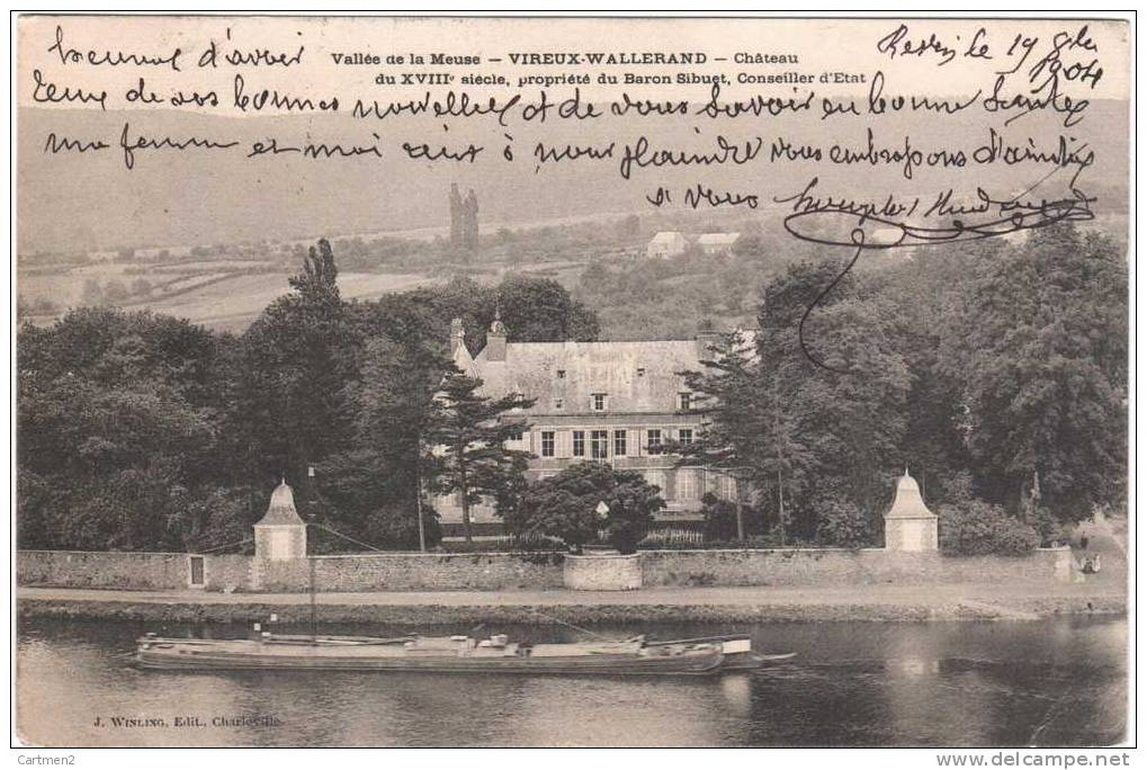 19 8bre
1904
heureux d'avoir
Vallée de la Meuse — VIREUX-WALLERAND — Château
du XVIIIe siècle, propriété du Baron Sibuet, Conseiller d'Etat
de vos bonnes nouvelles et de vous savoir en bonne Santé
ma femme et moi à nous plaindre vous embrassons d'amitié
J. WINLING, Edit., Charleville
Cartmen2
www.delcampe.net